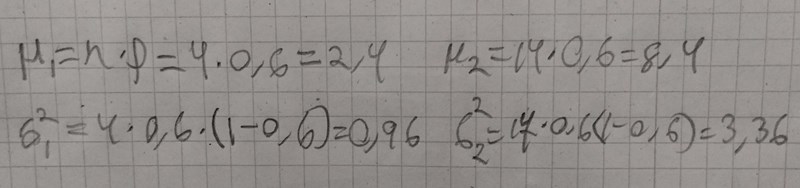 μ₁=n·p=4·0,6=2,4 μ₂=14·0,6=8,4
σ₁²=4·0,6·(1-0,6)=0,96 σ₂²=14·0,6(1-0,6)=3,36